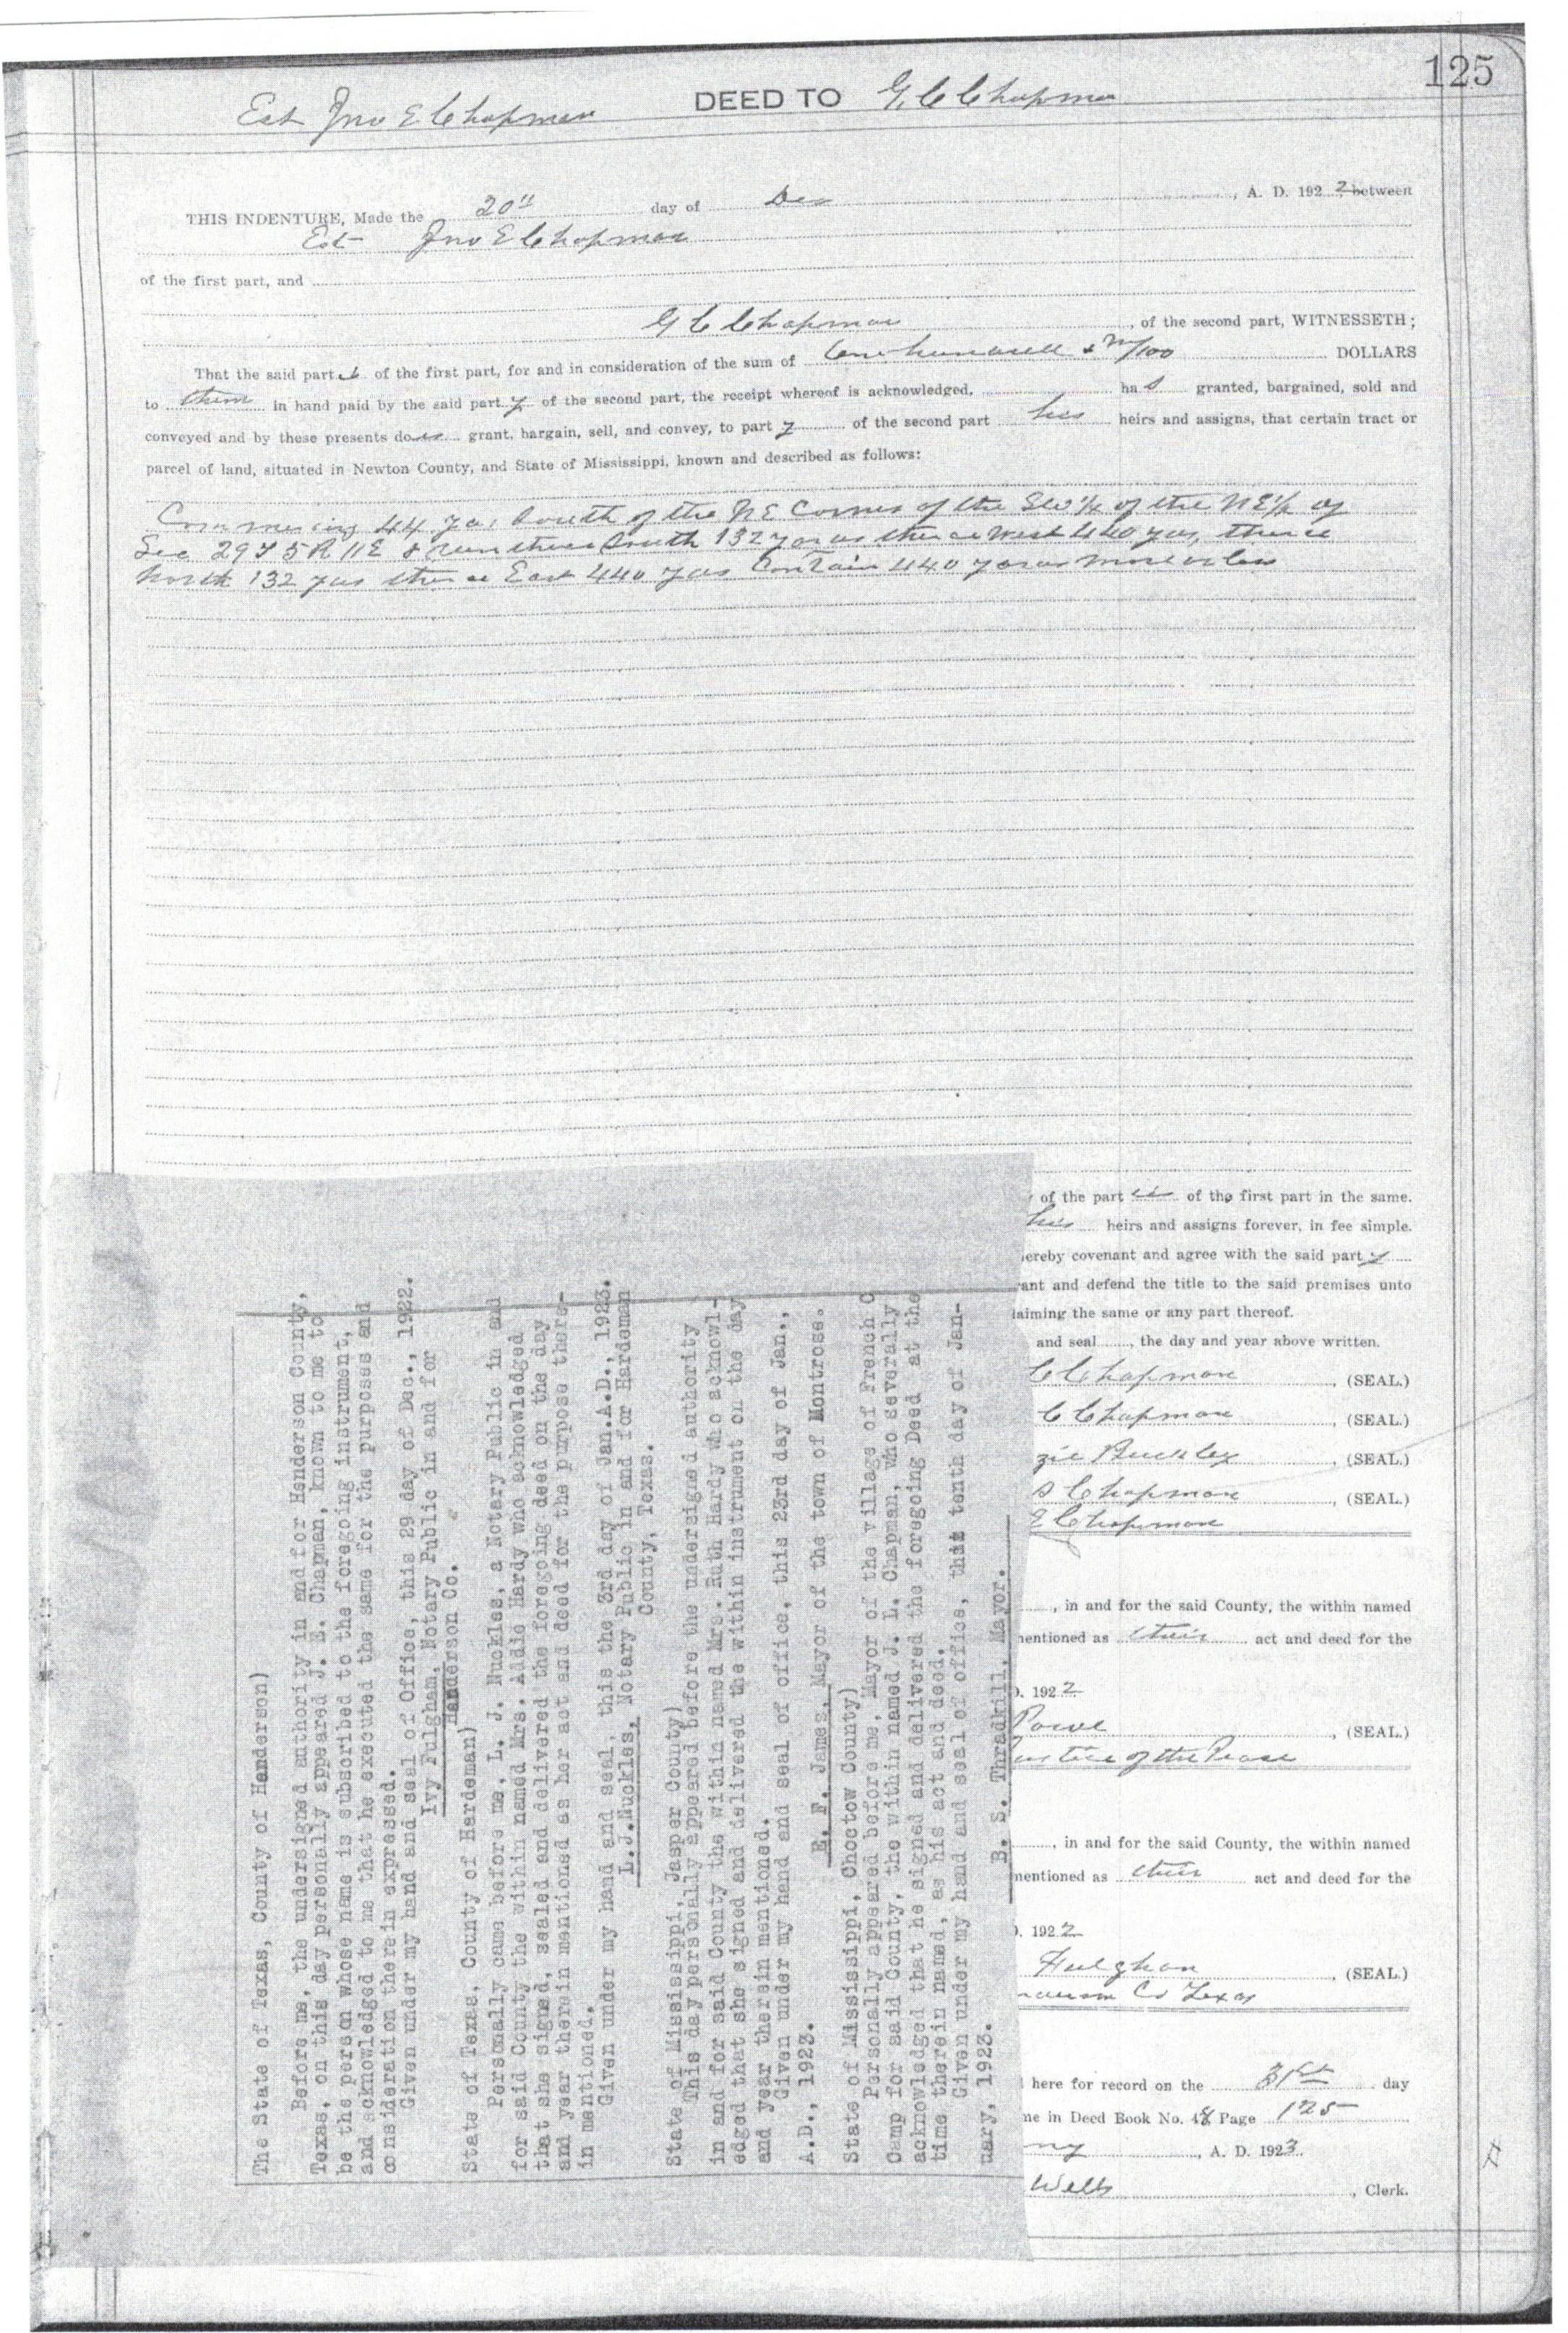 125
Est Jno E Chapman DEED TO G C Chapman
THIS INDENTURE, Made the 20" day of Dec , A. D. 1922 between
Est Jno E Chapman
of the first part, and
G C Chapman , of the second part, WITNESSETH;
That the said part of the first part, for and in consideration of the sum of One hundred & no/100 DOLLARS
to them in hand paid by the said part y of the second part, the receipt whereof is acknowledged, ha s granted, bargained, sold and
conveyed and by these presents do es grant, bargain, sell, and convey, to part y of the second part his heirs and assigns, that certain tract or
parcel of land, situated in Newton County, and State of Mississippi, known and described as follows:
Commencing 44 yds South of the NE Corner of the SW 1/4 of the NE 1/4 of
Sec 29 T 5 R 11E & run thence South 132 yards thence West 440 yds, thence
North 132 yds thence East 440 yds Contain 440 yards more or less
of the part ies of the first part in the same.
his heirs and assigns forever, in fee simple.
hereby covenant and agree with the said part y
rant and defend the title to the said premises unto
laiming the same or any part thereof.
and seal , the day and year above written.
C Chapman , (SEAL.)
C Chapman , (SEAL.)
zie Buckley , (SEAL.)
S Chapman , (SEAL.)
E Chapman
, in and for the said County, the within named
mentioned as their act and deed for the
D. 1922
Powe , (SEAL.)
Justice of the Peace
, in and for the said County, the within named
mentioned as their act and deed for the
D. 1922
Fulghan , (SEAL.)
Co Texas
here for record on the 31st day
me in Deed Book No. 48 Page 125
ny , A. D. 1923.
Wells , Clerk.
The State of Texas, County of Handerson)
Before me, the undersigned authority in and for Henderson County,
Texas, on this day personally appeared J. E. Chapman, known to me to
be the person whose name is subscribed to the foregoing instrument,
and acknowledged to me that he executed the same for the purposes and
consideration therein expressed.
Given under my hand and seal of Office, this 29 day of Dec., 1922.
Ivy Fulgham, Notary Public in and for
Handerson Co.
State of Texas, County of Hardeman)
Personally came before me, L. J. Nuckles, a Notary Public in and
for said County the within named Mrs. Addie Hardy who acknowledged
that she signed, sealed and delivered the foregoing deed on the day
and year therein mentioned as her act and deed for the purpose there-
in mentioned.
Given under my hand and seal, this the 3rd day of Jan.A.D., 1923.
L.J.Nuckles, Notary Public in and for Hardeman
County, Texas.
State of Mississippi, Jasper County)
This day personally appeared before the undersigned authority
in and for said County the within named Mrs. Ruth Hardy who acknowl-
edged that she signed and delivered the within instrument on the day
and year therein mentioned.
Given under my hand and seal of office, this 23rd day of Jan.,
A.D., 1923.
E. F. James, Mayor of the town of Montrose.
State of Mississippi, Choctow County)
Personally appeared before me, Mayor of the village of French C
Camp for said County, the within named J. L. Chapman, who severally
acknowledged that he signed and delivered the foregoing Deed at the
time therein named, as his act and deed.
Given under my hand and seal of office, this tenth day of Jan-
uary, 1923.
B. S. Thradkill, Mayor.